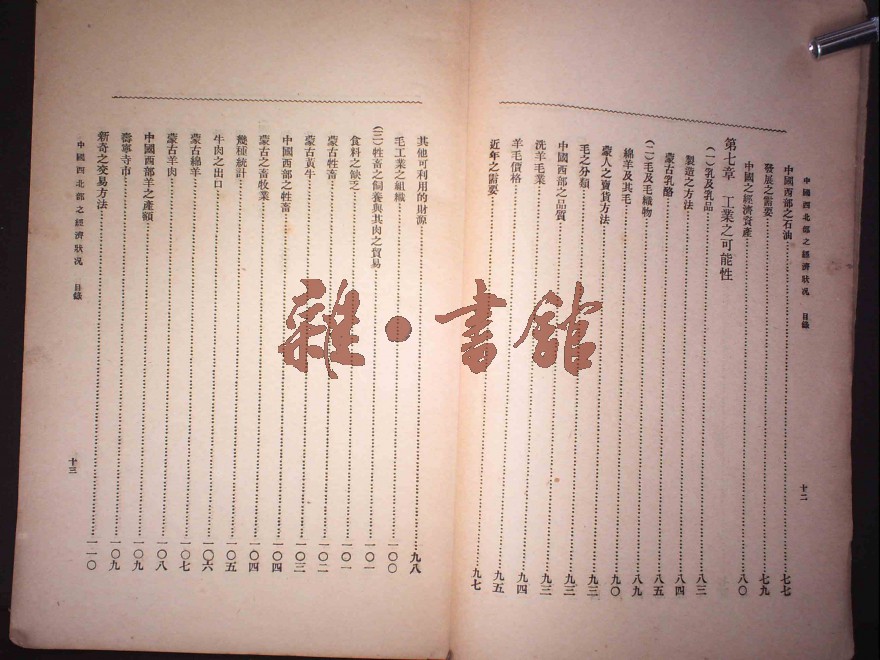 中國西北部之經濟狀況 目錄
十二
中國西部之石油……七七
發展之需要……七九
中國之經濟資產……八〇
第七章 工業之可能性
(一)乳及乳品……八三
製造之方法……八四
蒙古乳酪……八五
(二)毛及毛織物……八九
綿羊及其毛……九〇
蒙人之賣貨方法……九三
毛之分類……九三
中國西部之品質……九三
洗羊毛業……九四
羊毛價格……九五
近年之需要……九七
其他可利用的財源……九八
毛工業之組織……一〇〇
(三)牲畜之飼養與其肉之貿易……一〇一
食料之缺乏……一〇一
蒙古牲畜……一〇二
蒙古黃牛……一〇三
中國西部之牲畜……一〇四
蒙古之畜牧業……一〇四
幾種統計……一〇五
牛肉之出口……一〇六
蒙古綿羊……一〇七
蒙古羊肉……一〇八
中國西部羊之產額……一〇九
壽寧寺市……一〇九
新奇之交易方法……一一〇
中國西北部之經濟狀況 目錄
十三
雜·書館